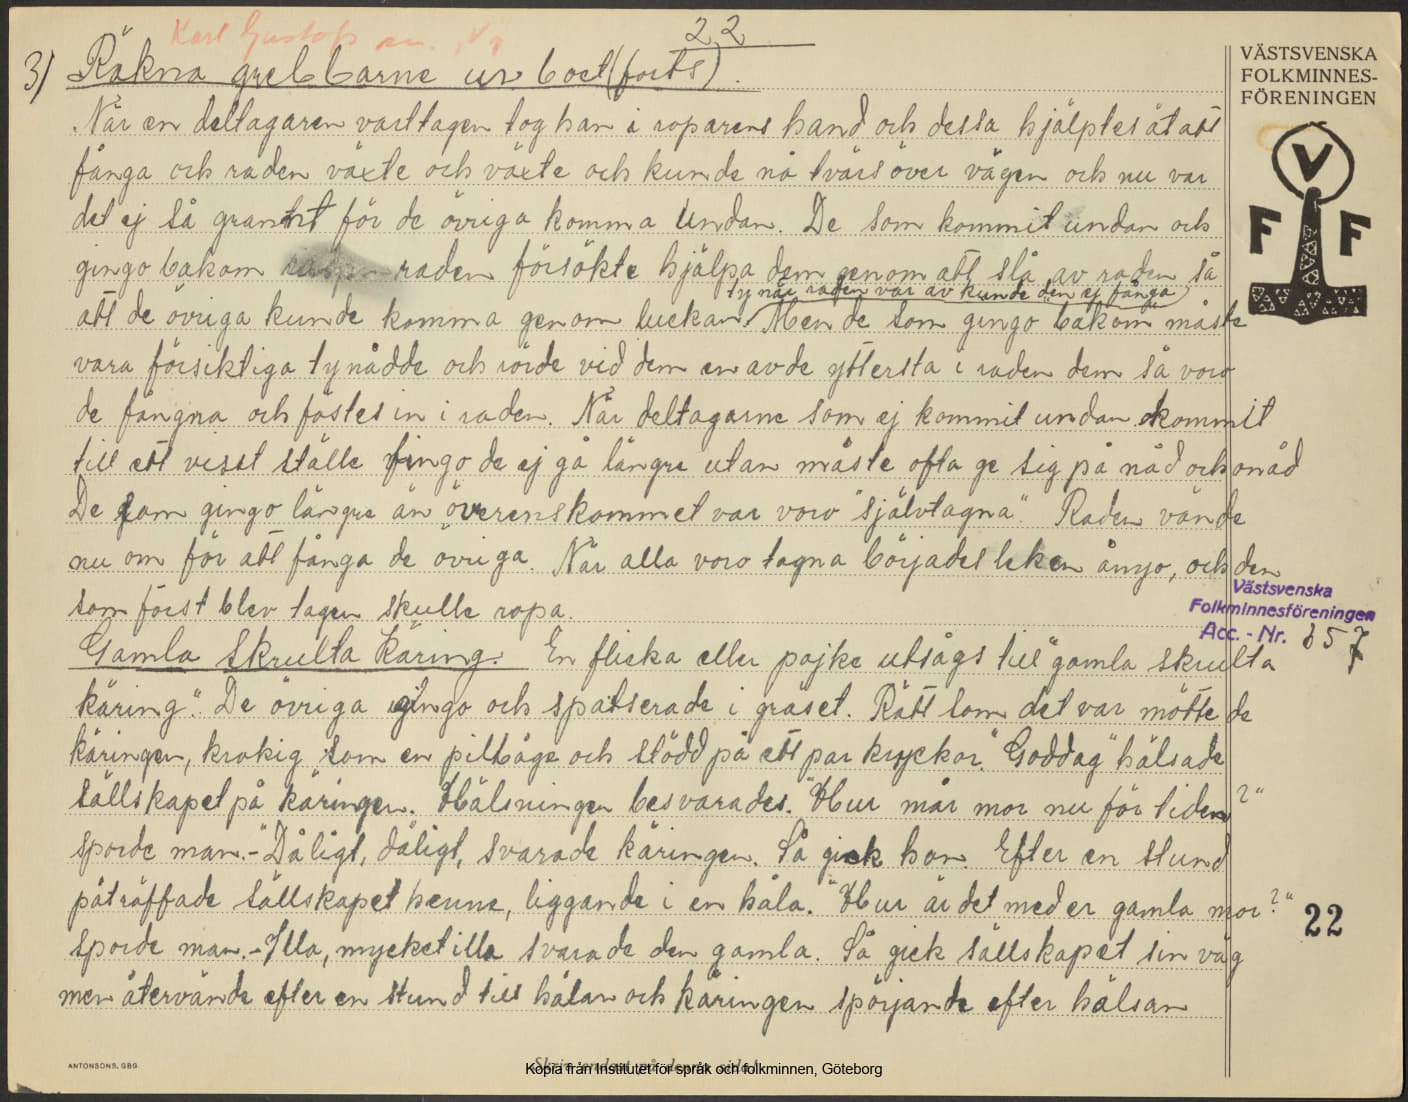 Karl Gustafs
22
3) Räkna grebbarne ur boet (forts).
När en deltagaren vart tagen tog han i roparens hand och dessa hjälptes åt att
fånga och raden växte och växte och kunde nå tvärs över vägen och nu var
det ej så grannt för de övriga komma undan. De som kommit undan och
gingo bakom raden försökte hjälpa dem genom att slå av raden så
ty när raden var av kunde den ej fånga
att de övriga kunde komma genom luckan. Men de som gingo bakom måste
vara försiktiga ty nådde och rörde vid dem en av de yttersta i raden dem så voro
de fångna och fästes in i raden. När deltagarne som ej kommit undan kommit
till ett visst ställe fingo de ej gå längre utan måste ofta ge sig på nåd och onåd
De som gingo längre än överenskommet var voro "självtagna". Raden vände
nu om för att fånga de övriga. När alla voro tagna börjades leken ånyo, och den
som först blev tagen skulle ropa.
Gamla Skrulta Käring. En flicka eller pojke utsågs till "gamla skrulta
käring". De övriga gingo och spatserade i gräset. Rätt som det var mötte de
käringen, krokig som en pilbåge och stödd på ett par kryckor. "Goddag" hälsade
sällskapet på käringen. Hälsningen besvarades. "Hur mår mor nu för tiden?"
sporde man. - "Dåligt, dåligt, svarade käringen. Så gick hon. Efter en stund
påträffade sällskapet henne, liggande i en håla. "Hur är det med er gamla mor?"
sporde man. - Illa, mycket illa svarade den gamla. Så gick sällskapet sin väg
men återvände efter en stund till hålan och käringen spörjande efter hälsan
VÄSTSVENSKA
FOLKMINNES-
FÖRENINGEN
V
F F
Västsvenska
Folkminnesföreningen
Acc. - Nr. 857
22
ANTONSONS, GBG
Skriv endast på denna sida!
Kopia från Institutet för språk och folkminnen, Göteborg